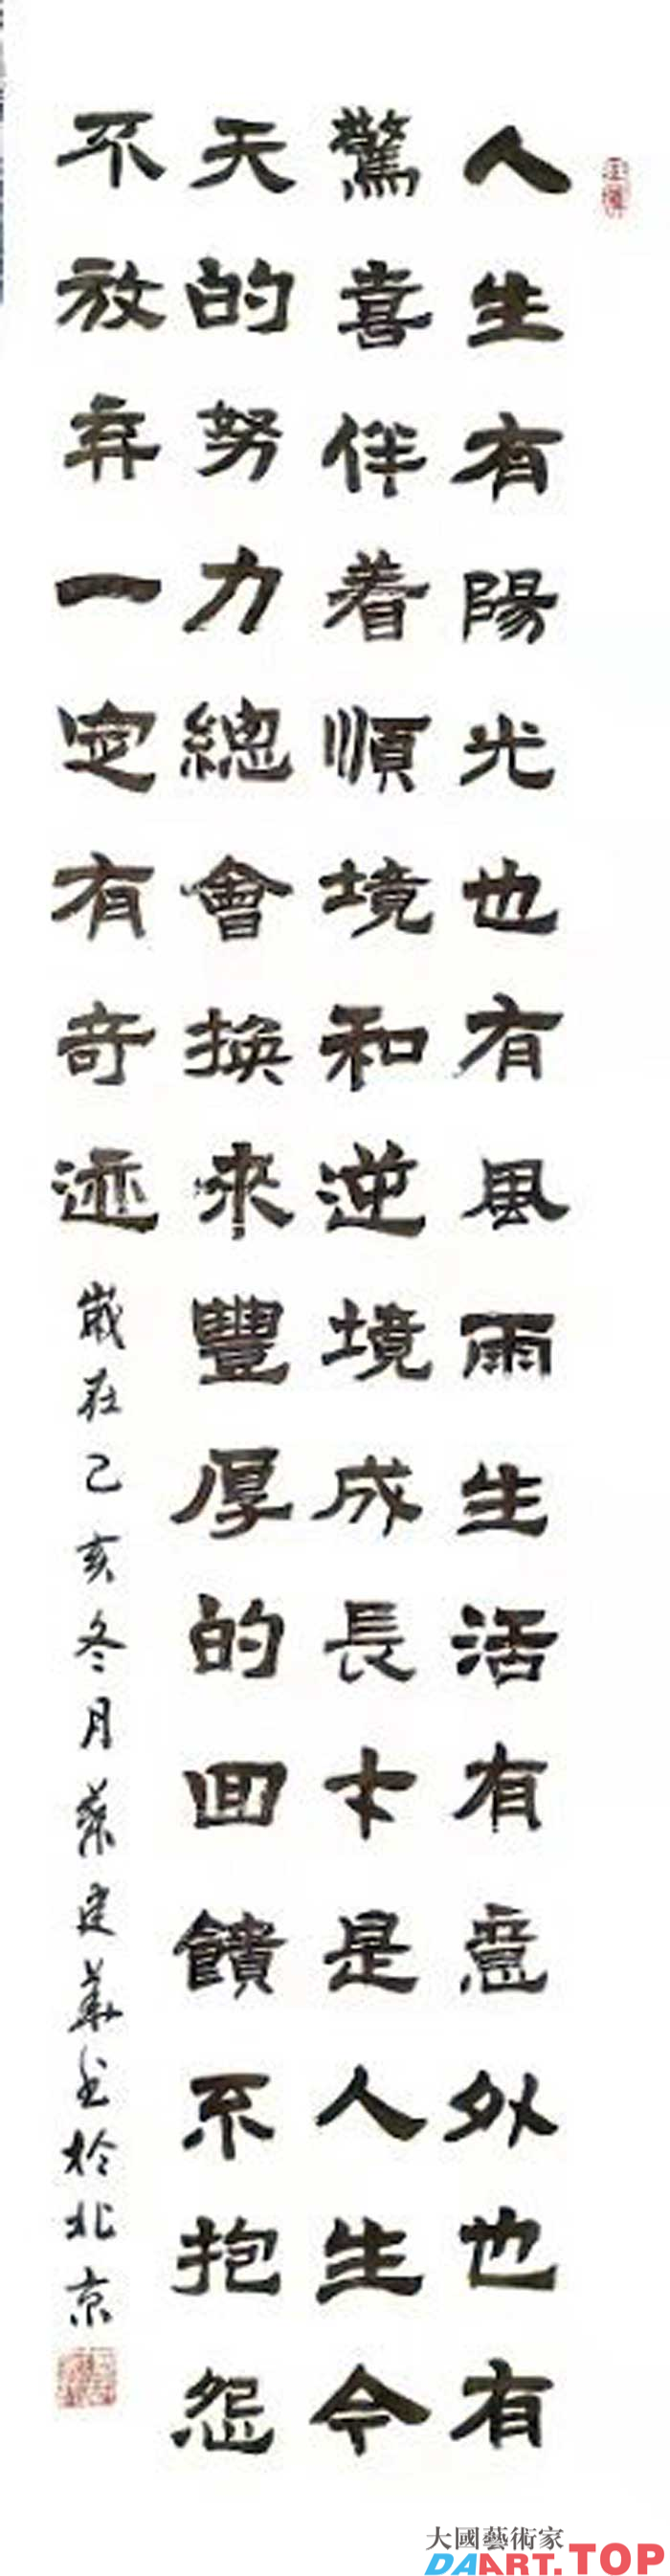 人生有陽光也有風雨生活有意外也有
驚喜伴着順境和逆境成長才是人生今
天的努力總會换來豐厚的囬饋不抱怨
不放弃一定有奇迹歲在己亥冬月蔡建華书於北京
大國藝術家
DAART.TOP